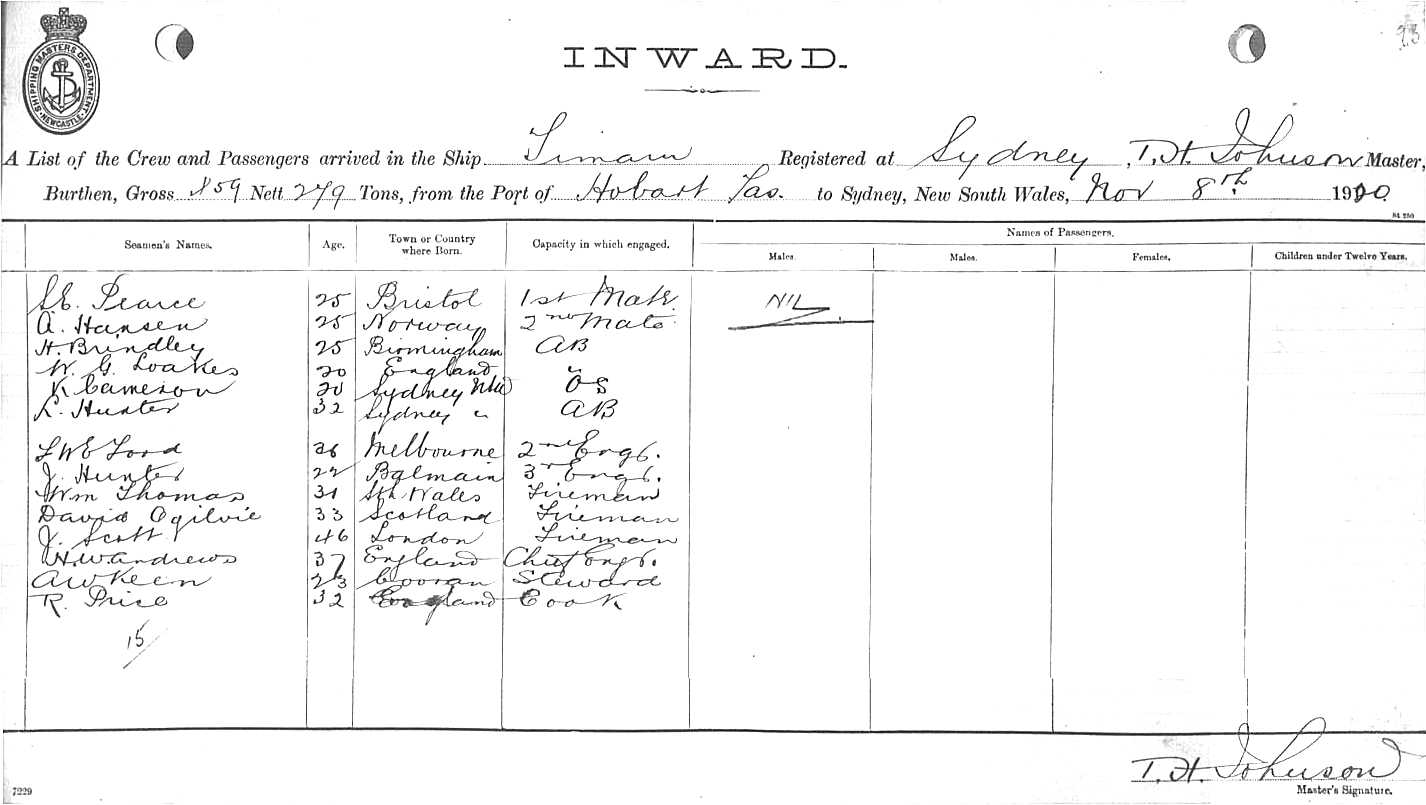 SHIPPING MASTERS DEPARTMENT NEWCASTLE
INWARD.
A List of the Crew and Passengers arrived in the Ship Registered at Sydney, T. H. Johnson Master,
Burthen, Gross Nett 279 Tons, from the Port of Hobart Tas. to Sydney, New South Wales, Nov 8th 1900
84 250
Seamen's Names. Age. Town or Country where Born. Capacity in which engaged. Names of Passengers.
Males. Males. Females. Children under Twelve Years.
S.E. Pearce 25 Bristol 1st Mate NIL
A. Hansen 25 Norway 2nd Mate
H. Brindley 25 Birmingham AB
W. G. Loakes 20 England "
K Cameron 20 Sydney NSW OS
L. Hunter 32 Sydney " AB
L W E Ford 26 Melbourne 2nd Engr.
J. Hunter 22 Balmain 3rd Engr.
Wm Thomas 31 Sth Wales Fireman
David Ogilvie 33 Scotland Fireman
J. Scott 46 London Fireman
H. W. Andrews 37 England Chief Engr.
A W Keen 23 Steward
R. Price 32 England Cook
15
T. H. Johnson
Master's Signature.
7229